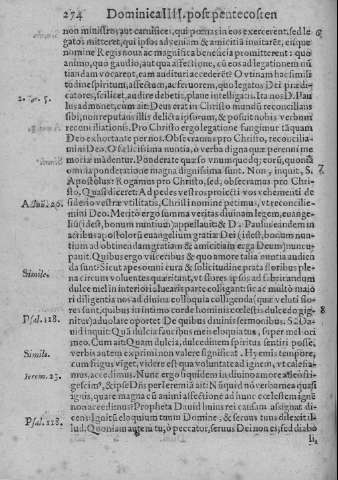 274 Dominica IIII. post pentecosten
non ministros aut carnifices, qui pœnas in eos exercerent. sed le
gatos mitteret, qui ipsos ad veniam & amicitiã inuitarẽt, eisque
nomine Regis noua ac magnifica beneficia promitterent: quo
animo, quo gaudio, aut qua affectione, cũ eos ad legationem nũ
tiandam vocarent, eam audituri accederẽt? O vtinam hac simili
tudine spiritum, affectum, ac feruorem, quo legatos Dei prædi
catores, scilicet, audire debetis, plane intelligatis. Ita nos D. Pau
lus admonet, cum ait: Deus erat in Christo mundũ reconcilians
sibi, non reputans illis delicta ipsorum, & posuit nobis verbum
reconciliationis. Pro Christo ergo legatione fungimur tãquam
Deo exhortante per nos. Obsecramus pro Christo, reconcilia-
mini Deo. O fælicissima nuntia, o verba digna quæ perenni me
moria mãdentur. Ponderate quæso vnum quodq; eorũ, quoniã
omnia ponderatione magna dignissima sunt. Non, inquit, S.
Apostolus: Rogamus pro Christo, sed, obsecramus pro Chri-
sto. Quasi diceret: Ad pedes vestros proiecti vos vehementi de
siderio vestræ vtilitatis, Christi nomine petimus, vt reconcilie-
mini Deo. Merito ergo summa veritas diuinam legem, euange-
liũ (id est, bonum nuntium) appellauit: & D. Paulus eiusdem in
actibus apostolorũ euangelium gratiæ Dei (id est, bonum nun
tium ad obtinendam gratiam & amicitiam erga Deum) nuncu
pauit. Quibus ergo visceribus & quo amore talia nuntia audien
da sunt? Sicut apes omni cura & solicitudine prata floribus ple-
na circum voluentes quæritant, vt flores ipsos ad fabricandum
dulce mel in interiori aluearis parte colligant: sic ac multò maio
ri diligentia nos ad diuina colloquia colligenda (quæ veluti flo-
res sunt, quibus in intimo corde hominis cœlestis dulcedo gig-
nitur) aduolare oportet De quibus diuinis sermonibus. S. Da-
uid inquit: Quã dulcia faucibus meis eloquia tua, super mel ori
meo. Cum ait: Quam dulcia, dulcedinem spiritus sentiri posse,
verbis autem exprimi non valere significat. Hyemis tempore,
cum frigus viget, videre est qua voluntate ad ignem, vt calefia-
mus, accedimus. Nunc ergo si quidem in diuino amore alge sti-
gescim⁹, & ipse Dñs per Ieremiã ait: Nũquid nõ verba mea quasi
ignis, quare magna cũ animi affectione ad hunc cœlestem ignẽ
non accedimus? Propheta Dauid huius rei causam assignat di-
cens: Ignitũ eloquium tuum Domine, & seruus tuus dilexit il-
lud. Quoniam autem tu, o peccator, seruus Dei non es, sed diabo
li,
2. Cor. 5.
Actuũ. 20.
Simile.
Psal. 118.
Simile.
Ierem. 23.
Psal. 118.
6
7
8